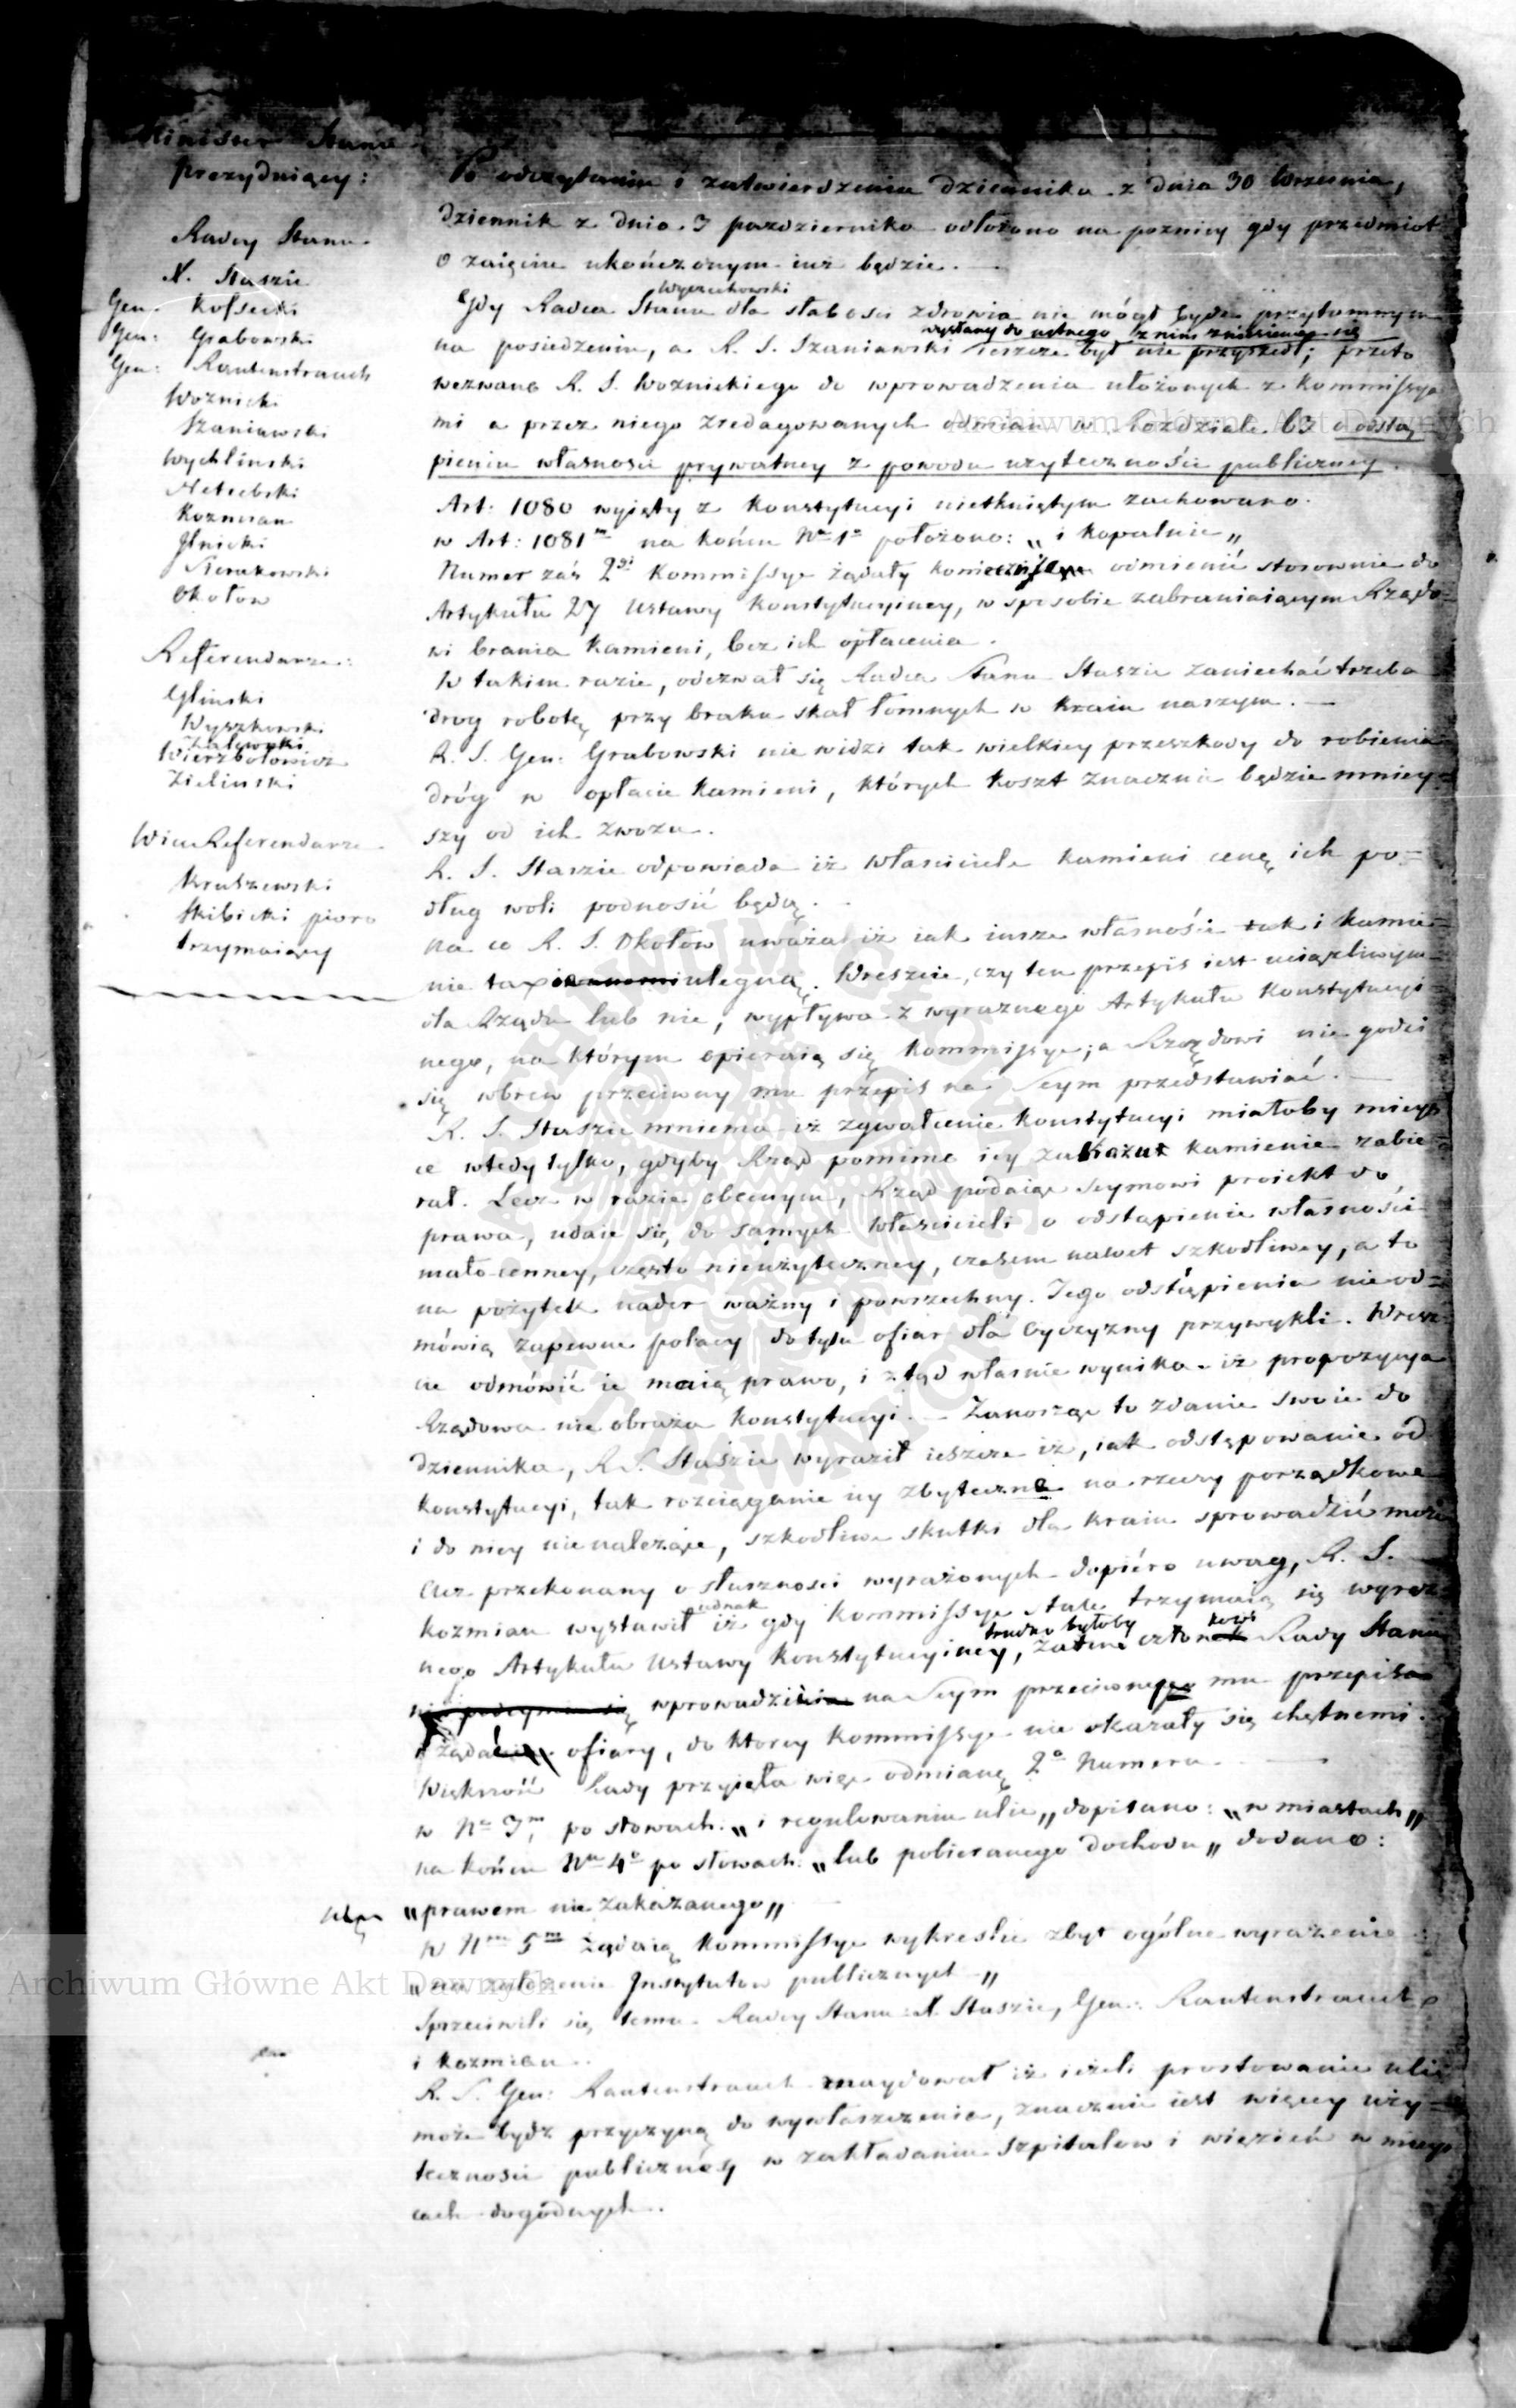 Minister Stanu
prezyduiący:
Radcy Stanu
X. Staszic
Gen. Kossecki
Gen: Grabowski
Gen: Rautenstrauch
Woznicki
Szaniawski
Wychliński
Kozmian
Jlnicki
Sierakowski
Okołow
Referendarze:
Gliński
Wyszkowski
Zalewski
Wierzbołowicz
Zieliński
Wice Referendarze
Kruszewski
Skibicki pioro
trzymaiący
Po odczytaniu i zatwierdzeniu dziennika z dnia 30 Września,
dziennik z dnia 3 pazdziernika odłożono na pozniey gdy przedmiot
o zaięciu ukończonym iuż będzie.
Wyczechowski
Gdy Radca Stanu dla słabości zdrowia nie mógł bydź przytomnym
wysłany do ustnego z nim zniesienia się
na posiedzeniu, a R. S. Szaniawski ieszcze był nie przyszedł; przeto
wezwano R. S. Woznickiego do wprowadzenia ułożonych z Kommissya
mi a przez niego zredagowanych odmian w Rozdziale 63 o odstą
pieniu własności prywatney z powodu użyteczności publiczney.
Art: 1080 wyięty z Konstytucyi nietkniętym zachowano.
w Art: 1081m na końcu Nru 1o położono: „i kopalnie„
Numer zaś 2gi Kommissye żądały koniecznie odmienić stosownie do
Artykułu 27 Ustawy Konstytucyiney, w sposobie zabraniaiącym Rządo=
wi brania Kamieni, bez ich opłacenia.
W takim razie, odezwał się Radca Stanu Staszic zaniechać trzeba
drog robotę przy braku skał łomnych w kraiu naszym. —
R. S. Gen: Grabowski nie widzi tak wielkiey przeszkody do robienia
dróg w opłacie kamieni, których koszt znacznie będzie mniey=
szy od ich zwozu.
R. S. Staszic odpowiada iż właściciele kamieni cenę ich po=
dług woli podnosić będą.
Na co R. S. Okołow uważa iż iak insze własności tak i kamie=
nie taxie ulegną. Wreszcie, czy ten przepis iest uciążliwym
dla Rządu lub nie, wypływa z wyraznego Artykułu Konstytucyi
nego, na którym opieraią się Kommissye; a Rządowi nie godzi
się wbrew przeciwny mu przepis na Seym przedstawiać. —
R. S. Staszic mniema iż zgwałcenie Konstytucyi miałoby miey
ce wtedy tylko, gdyby Rząd pomimo iey zakazu kamienie zabie=
rał. Lecz w razie obecnym, Rząd podaiąc Seymowi proiekt do
prawa, udaie się do samych właścicieli o odstąpienie własności
mało cenney, często nieużyteczney, czasem nawet szkodliwey, a to
na pożytek nader ważny i powszechny. Tego odstąpienia nie od=
mówią zapewne polacy do tylu ofiar dla Oyczyzny przywykli. Wresz
cie odmówić ie maią prawo, i ztąd własnie wynika iż propozycya
Rządowa nie obraża Konstytucyi. — Zanosząc to zdanie swoie do
dziennika, R. S. Staszic wyraził ieszcze iż, iak odstępowanie od
Konstytucyi, tak rozciąganie iey zbyteczne na rzeczy porządkowe
i do niey nienależące, szkodliwe skutki dla kraiu sprowadzić może
Acz przekonany o słuszności wyrażonych dopiéro uwag, R. S.
iednak
Kozmian wystawił iż gdy Kommissye stale trzymaią się wyraz=
trudno byłoby kowi
nego Artykułu Ustawy Konstytucyiney, zatem członek Rady Stanu
wprowadzić na Seym przeciwnego mu przepisu
i żądać ofiary, do ktorey Kommissye nie okazały się chętnemi.
Większość Rady przyięła więc odmianę 2o Numeru. —
w Nrze 3m, po słowach: „i regulowaniu ulic„ dopisano: „w miastach„
na końcu Nru 4o po słowach: „lub pobieranego dochodu„ dodano:
„prawem nie zakazanego„
w Nrze 5m żądaią Kommissye wykreślić zbyt ogólne wyrażenie
„na założenie Jnstytutow publicznych„
Sprzeciwili się temu Radcy Stanu X. Staszic, Gen: Rautenstrauch
i Kozmian.
R. S. Gen: Rautenstrauch znaydował iż ieżeli prostowanie ulic
może bydź przyczyną do wywłaszczenia, znacznie iest więcey uży=
teczności publiczney w zakładaniu szpitalow i więzień w miey
cach dogodnych.
Archiwum Główne Akt Dawnych
Archiwum Główne Akt Dawnych